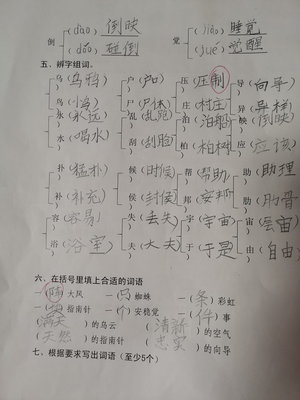 倒 (dào) 倒映 觉 (jiào) 睡觉
(dǎo) 碰倒 (jué) 觉醒
五、辨字组词。
乌(乌鸦) 户(户口) 压(压制) 导(向导)
鸟(小鸟) 尸(尸体) 庄(村庄) 异(异样)
永(永远) 乱(乱跑) 泊(泊船) 映(倒映)
水(喝水) 刮(刮脸) 柏(柏树) 应(应该)
扑(猛扑) 候(时候) 帮(帮助) 助(助理)
补(补充) 侯(封侯) 邦(安邦) 肋(肋骨)
容(容易) 失(丢失) 宇(宇宙) 宙(宙宇)
浴(浴室) 夫(大夫) 于(于是) 由(自由)
六、在括号里填上合适的词语
一(阵)大风 一(只)蜘蛛 一(条)彩虹
一(块)指南针 一(个)安稳觉 一(件)事
(满天)的乌云 (清新)的空气
(天然)的指南针 (忠实)的向导
七、根据要求写出词语(至少5个)